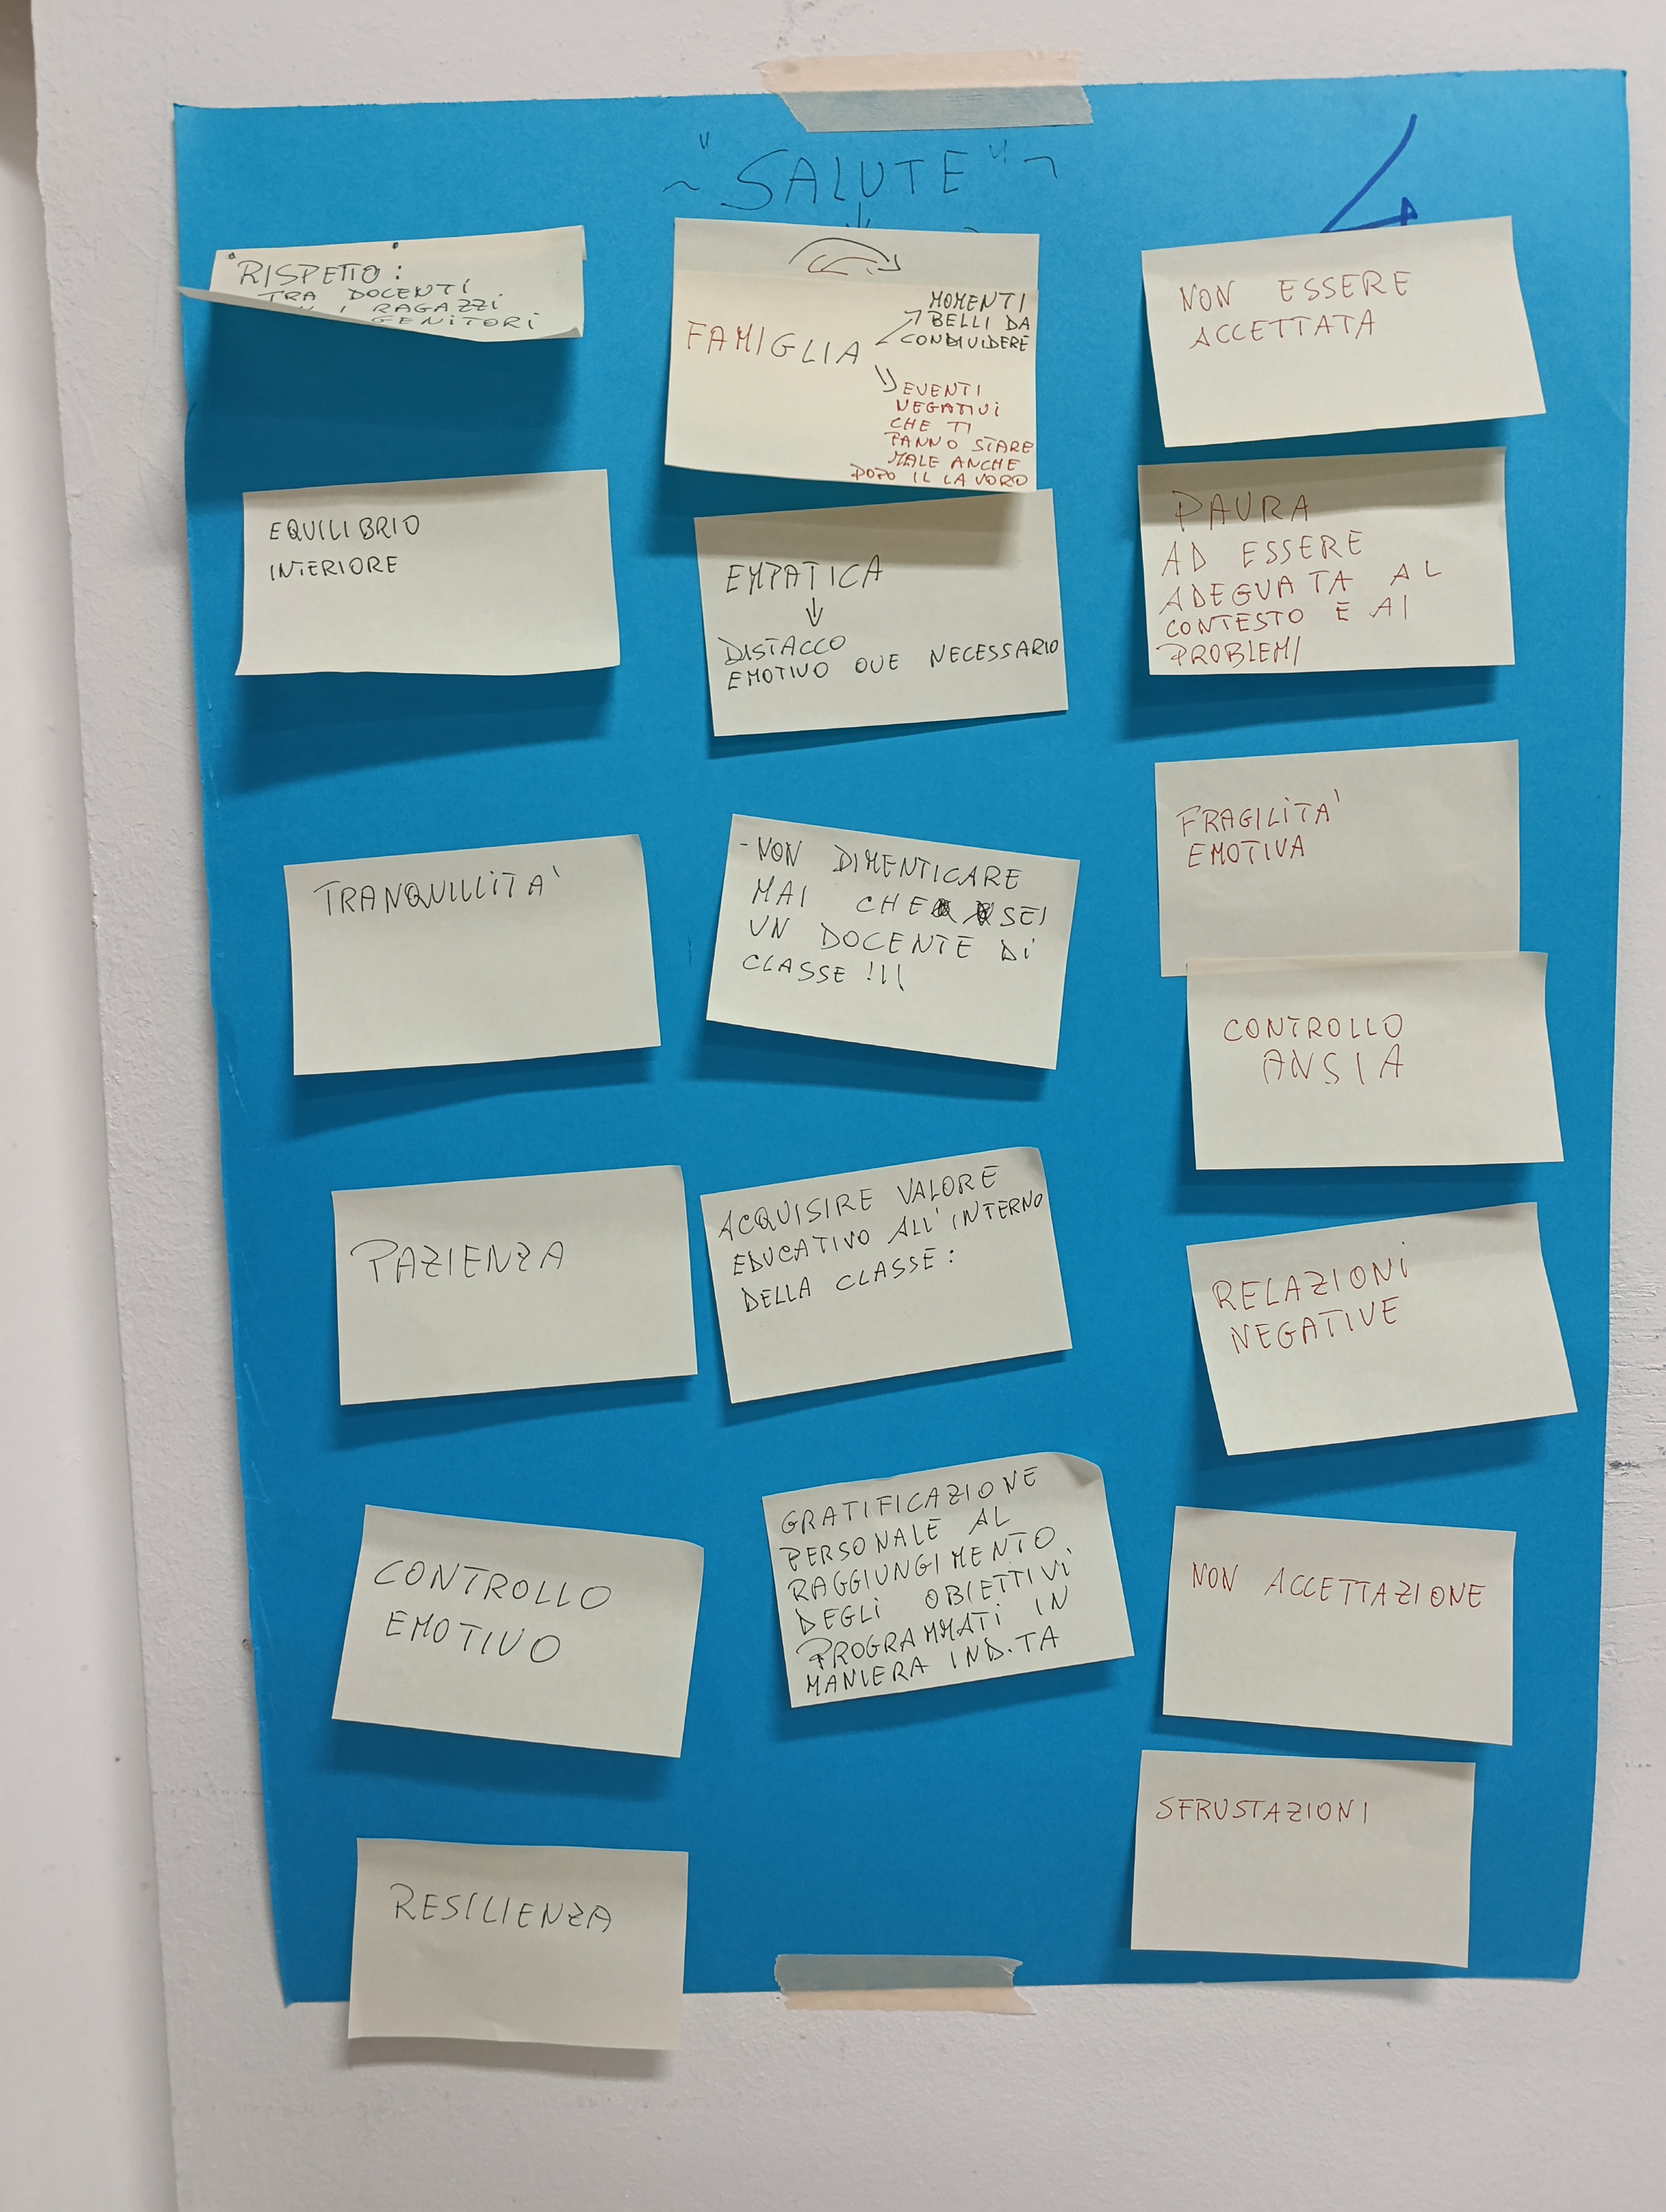 "SALUTE"
4
RISPETTO:
TRA DOCENTI
I RAGAZZI
GENITORI
EQUILIBRIO
INTERIORE
TRANQUILLITA'
PAZIENZA
CONTROLLO
EMOTIVO
RESILIENZA
FAMIGLIA
MOMENTI
BELLI DA
CONDIVIDERE
EVENTI
NEGATIVI
CHE TI
FANNO STARE
MALE ANCHE
DOPO IL LAVORO
EMPATICA
DISTACCO
EMOTIVO OVE NECESSARIO
-NON DIMENTICARE
MAI CHE SEI
UN DOCENTE DI
CLASSE!!!
ACQUISIRE VALORE
EDUCATIVO ALL'INTERNO
DELLA CLASSE:
GRATIFICAZIONE
PERSONALE AL
RAGGIUNGIMENTO
DEGLI OBIETTIVI
PROGRAMMATI IN
MANIERA IND.TA
NON ESSERE
ACCETTATA
PAURA
AD ESSERE
ADEGUATA AL
CONTESTO E AI
PROBLEMI
FRAGILITA'
EMOTIVA
CONTROLLO
ANSIA
RELAZIONI
NEGATIVE
NON ACCETTAZIONE
SFRUSTAZIONI